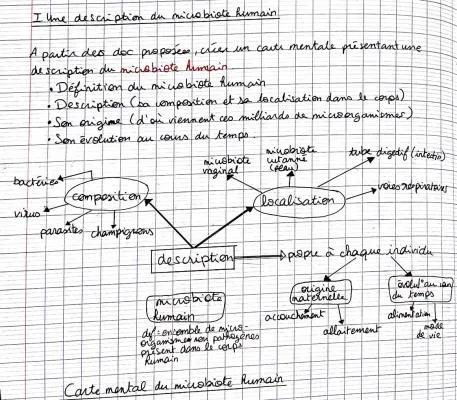 I Une description du microbiote humain
A partir des doc proposées, créer un carte mentale présentant une
description du microbiote humain
• Définition du microbiote humain
• Description (sa composition et sa localisation dans le corps)
• Son origine (d'où viennent ces milliards de microorganismes)
• Son évolution au cours du temps.
bactéries
virus
parasites
champignons
composition
microbiote
vaginal
microbiote
cutanné
(peau)
tube digestif (intestin)
voies respiratoires
localisation
description
propre à chaque individu
origine
maternelle
accouchement
allaitement
évolut° au cours
du temps
alimentation
mode
de vie
microbiote
humain
def: ensemble de micro-
organismes non pathogènes
présent dans le corps
humain
Carte mental du microbiote humain